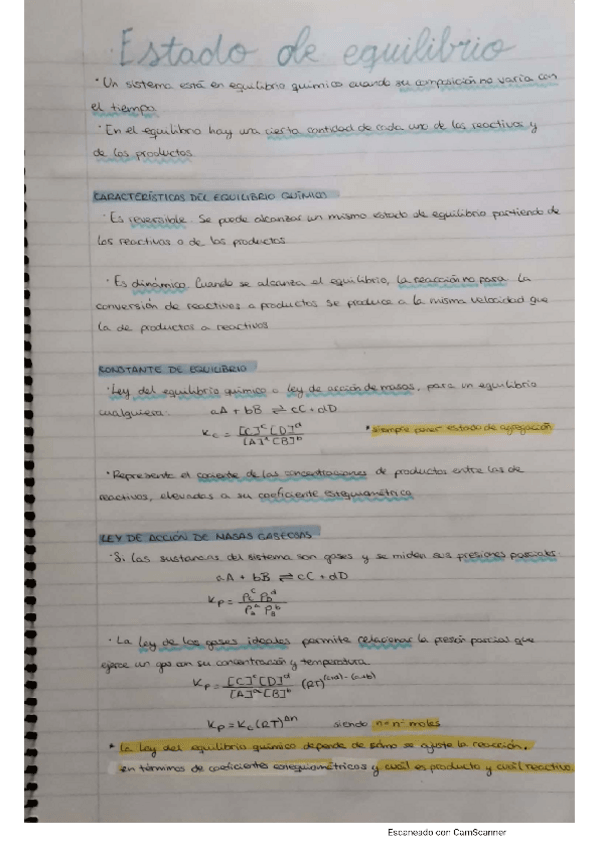 Estado de equilibrio
· Un sistema está en equilibrio químico cuando su composición no varía con
el tiempo.
· En el equilibrio hay una cierta cantidad de cada uno de los reactivos y
de los productos.
CARACTERÍSTICAS DEL EQUILIBRIO QUÍMICO
· Es reversible. Se puede alcanzar un mismo estado de equilibrio partiendo de
los reactivos o de los productos.
· Es dinámico. Cuando se alcanza el equilibrio, la reacción no para. La
conversión de reactivos a productos se produce a la misma velocidad que
la de productos a reactivos.
CONSTANTE DE EQUILIBRIO
· Ley del equilibrio químico o ley de acción de masas, para un equilibrio
cualquiera: aA + bB ⇌ cC + dD
Kc = [C]^c [D]^d / [A]^a [B]^b * siempre poner estado de agregación
· Representa el cociente de las concentraciones de productos entre las de
reactivos, elevadas a su coeficiente estequiométrico.
LEY DE ACCIÓN DE MASAS GASEOSAS
· Si las sustancias del sistema son gases y se miden sus presiones parciales:
aA + bB ⇌ cC + dD
Kp = Pc^c PD^d / Pa^a PB^b
· La ley de los gases ideales permite relacionar la presión parcial que
ejerce un gas con su concentración y temperatura
Kp = [C]^c [D]^d / [A]^a [B]^b (RT)^(c+d)-(a+b)
Kp = Kc (RT)^Δn siendo n = nº moles
* La ley del equilibrio químico depende de cómo se ajuste la reacción,
en términos de coeficientes estequiométricos y cuál es producto y cuál reactivo.
Escaneado con CamScanner